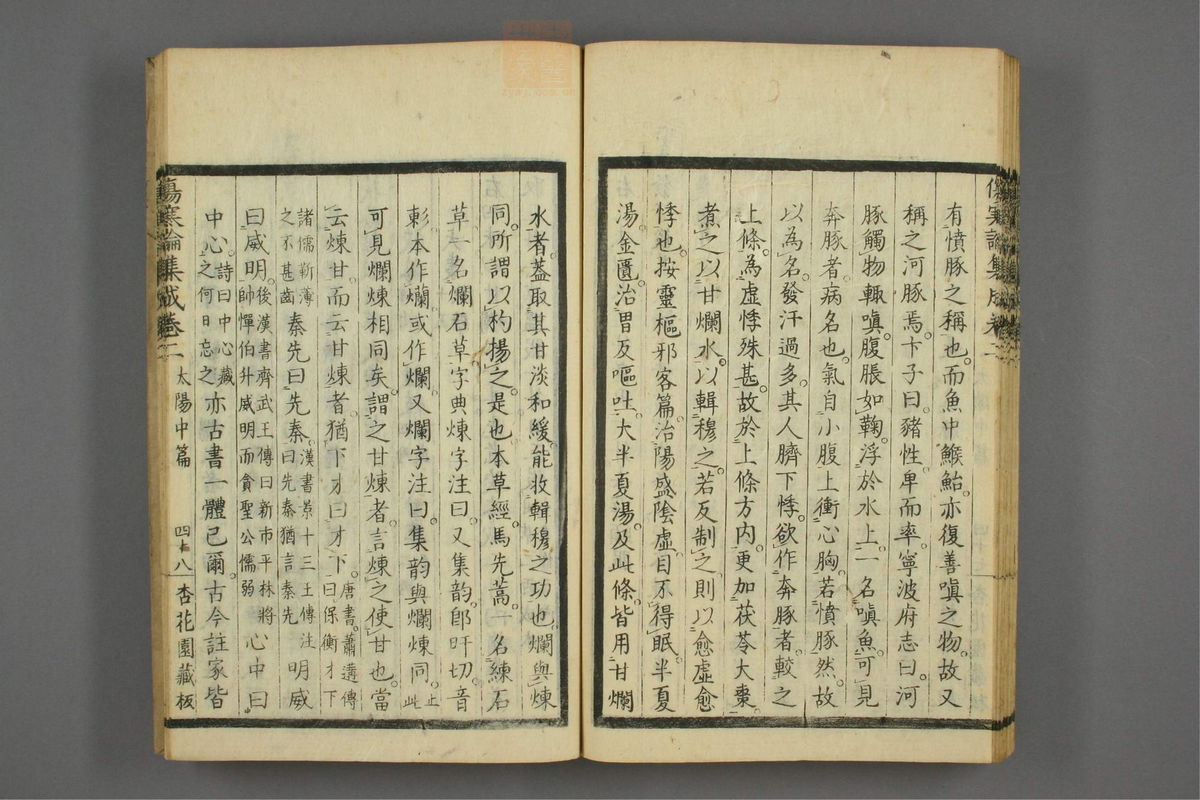 有憤豚之稱也。而魚中鯸鮐亦復善嗔之物。故又
稱之河豚焉。卞子曰豬性卑而率。寧波府志曰河
豚觸物輒嗔腹脹如鞠。浮於水上。一名嗔魚。可見
奔豚者病名也。氣自小腹上衝心胸。若憤豚然。故
以為名。發汗過多。其人臍下悸。欲作奔豚者。較之
上條。為虛悸殊甚。故於上條方內。更加茯苓大棗。
煮之以甘爛水。以輯穆之。若反制之。則以愈虛愈
悸也。按靈樞邪客篇。治陽盛陰虛。目不得眠。半夏
湯。金匱。治胃反嘔吐。大半夏湯。及此條。皆用甘爛
水者。葢取其甘淡和緩。能收輯穆之功也。爛與煉
同。所謂以杓揚之。是也。本草經。馬先蒿。一名練石
草。一名爛石草。字典煉字注曰。又集韵。郎旰切。音
𣁐。本作爛。或作爛。又爛字注曰。集韵與爛煉同。上此
可見爛煉相同矣。謂之甘煉者。言煉之使甘也。當
云煉甘。而云甘煉者。猶下才曰才下。唐書。蕭遘傳曰。保衡才下
諸儒靳薄之不甚齒秦先曰先秦。漢書景十三王傳注曰先秦猶言秦先明威
曰威明。後漢書齊武王傳曰新市平林將帥憚伯升威明而貪聖公懦弱心中曰
中心。詩曰中心藏之何日忘之亦古書一體已爾。古今註家。皆
傷寒論集成卷二 太陽中篇 四十八 杏花園藏板